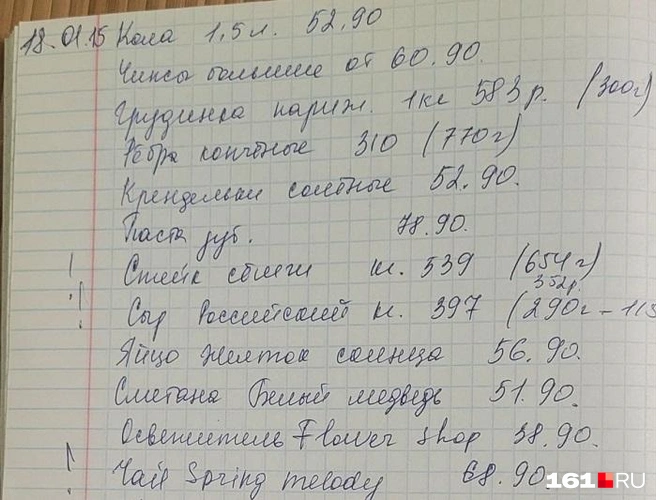 18.01.15 Кола 1,5 л. 52.90
Чипсы большие от 60.90.
Грудинка париж. 1кг 583р. (300г)
Рёбра копчёные 310 (770г)
Крендельки солёные 52.90.
Паста зуб. 78.90.
! Стейк сёмги кг. 539 (654г)
352р.
! Сыр Российский кг. 397 (290г - 115
Яйцо желток солнца 56.90.
Сметана Белый медведь 51.90.
Осветитель Flower shop 38.90.
! Чай Spring melody 68.90
161.RU